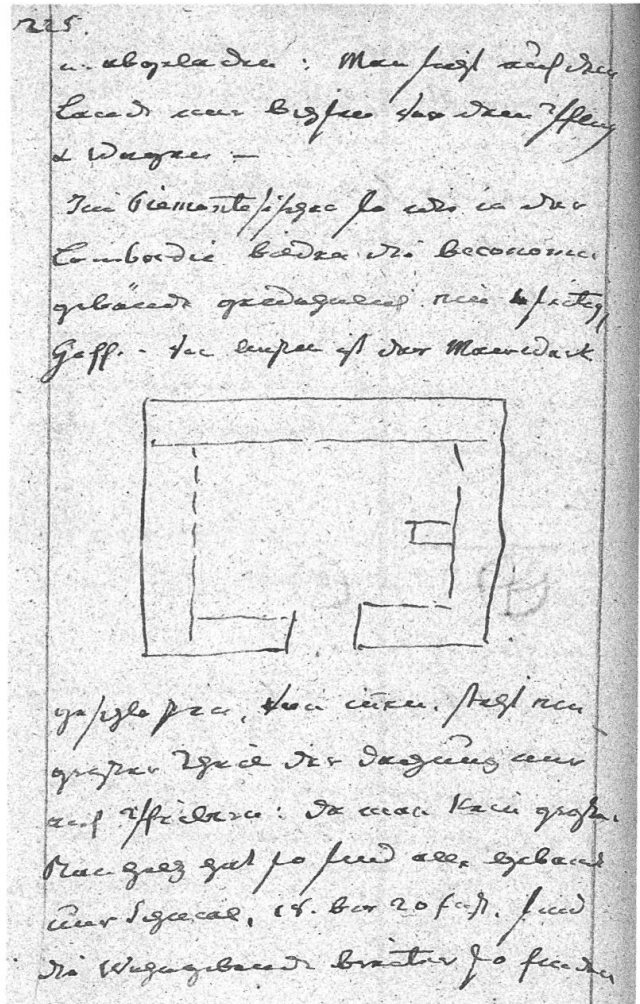 225.
u. abgeladen: Man sieht auf dem
Lande nur Bußen vor dem Pflug
& Wagen —
Im Piemontesischen so wie in der
Lombardie bilden die Oeconomie
gebäude gewöhnlich ein
Hoff. - von außen ist das Mauerwerk
geschlossen, von innen steht ein
großer Theil der Dachung nur
auf Pfeilern: da man kein großes
Bauholz hat so sind alle Gebäude
nur schmal, 18. bis 20 fuß, sind
die Wohngebäude breiter so finden